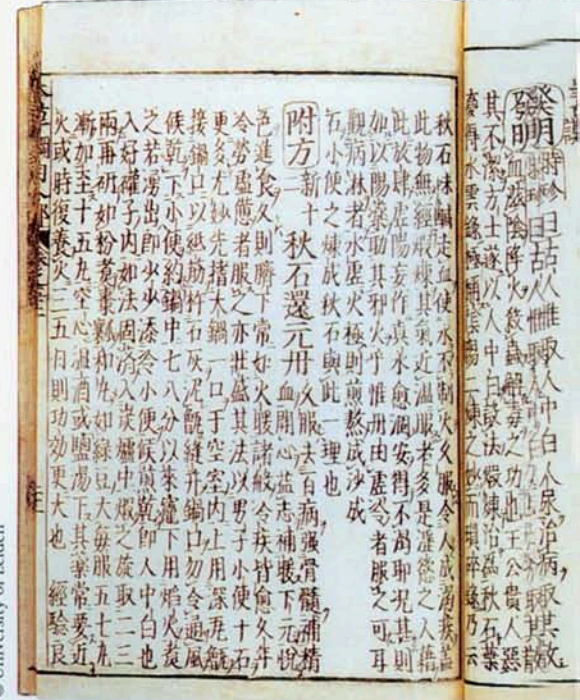 發明 時珍曰古人惟取人中白人尿治病取其散
血滋陰降火殺蟲解毒之功也王公貴人惡
其不潔方士遂以人中白設法煅煉治為秋石葉
夢得水雲錄極稱陰陽二煉之妙而瑣碎錄乃云
秋石味鹹走血使水不制火久服令人成渴疾蓋
此物既經煅煉其氣近溫服者多是淫慾之人藉
此放肆虛陽妄作真水愈涸安得不渴耶況甚則
加以陽藥助其邪火乎惟丹田虛冷者服之可耳
觀病淋者水虛火極則煎熬成沙成
石小便之煉成秋石與此一理也
附方 新十二 秋石還元丹 久服去百病强骨髓補精血開心益志補暖下元悅
色進食久則臍下常如火暖諸般冷疾皆愈久年
冷勞虛憊者服之亦壯盛其法以男子小便十石
更多尤妙先搘大鍋一口于空室内上用深瓦甑
接鍋口以紙筋杵石灰泥甑縫并鍋口勿令通風
候乾下小便約鍋中七八分以來竈下用焰火煮
之若湧出即少少添冷小便候煎乾即人中白也
入好確子内如法固濟入炭爐中煅之旋取二三
兩再研如粉煮棗瓤和丸如綠豆大每服五七丸
漸加至十五丸空心溫酒或鹽湯下其藥常要近
火或時復養火三五日則功効更大也 經驗良
University of Leiden